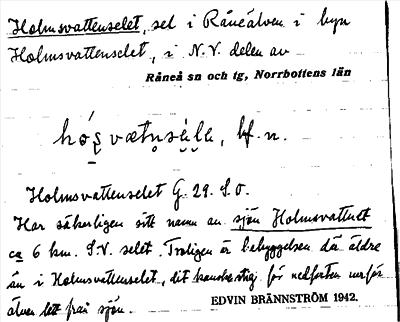 Holmsvattenselet, sel i Råneälven i byn
Holmsvattenselet, i N.V. delen av
Råneå sn och tg, Norrbottens län
hó̱s̮vætn̥sè̮l̮a, bf. n.
Holmsvattenselet G. 29. S.O.
Har säkerligen sitt namn av sjön Holmsvattnet
ca 6 km. S.V. selet. Troligen är bebyggelsen där äldre
än i Holmsvattenselet, dit kanske stig för nedfarten
älven lett från sjön.
EDVIN BRÄNNSTRÖM 1942.